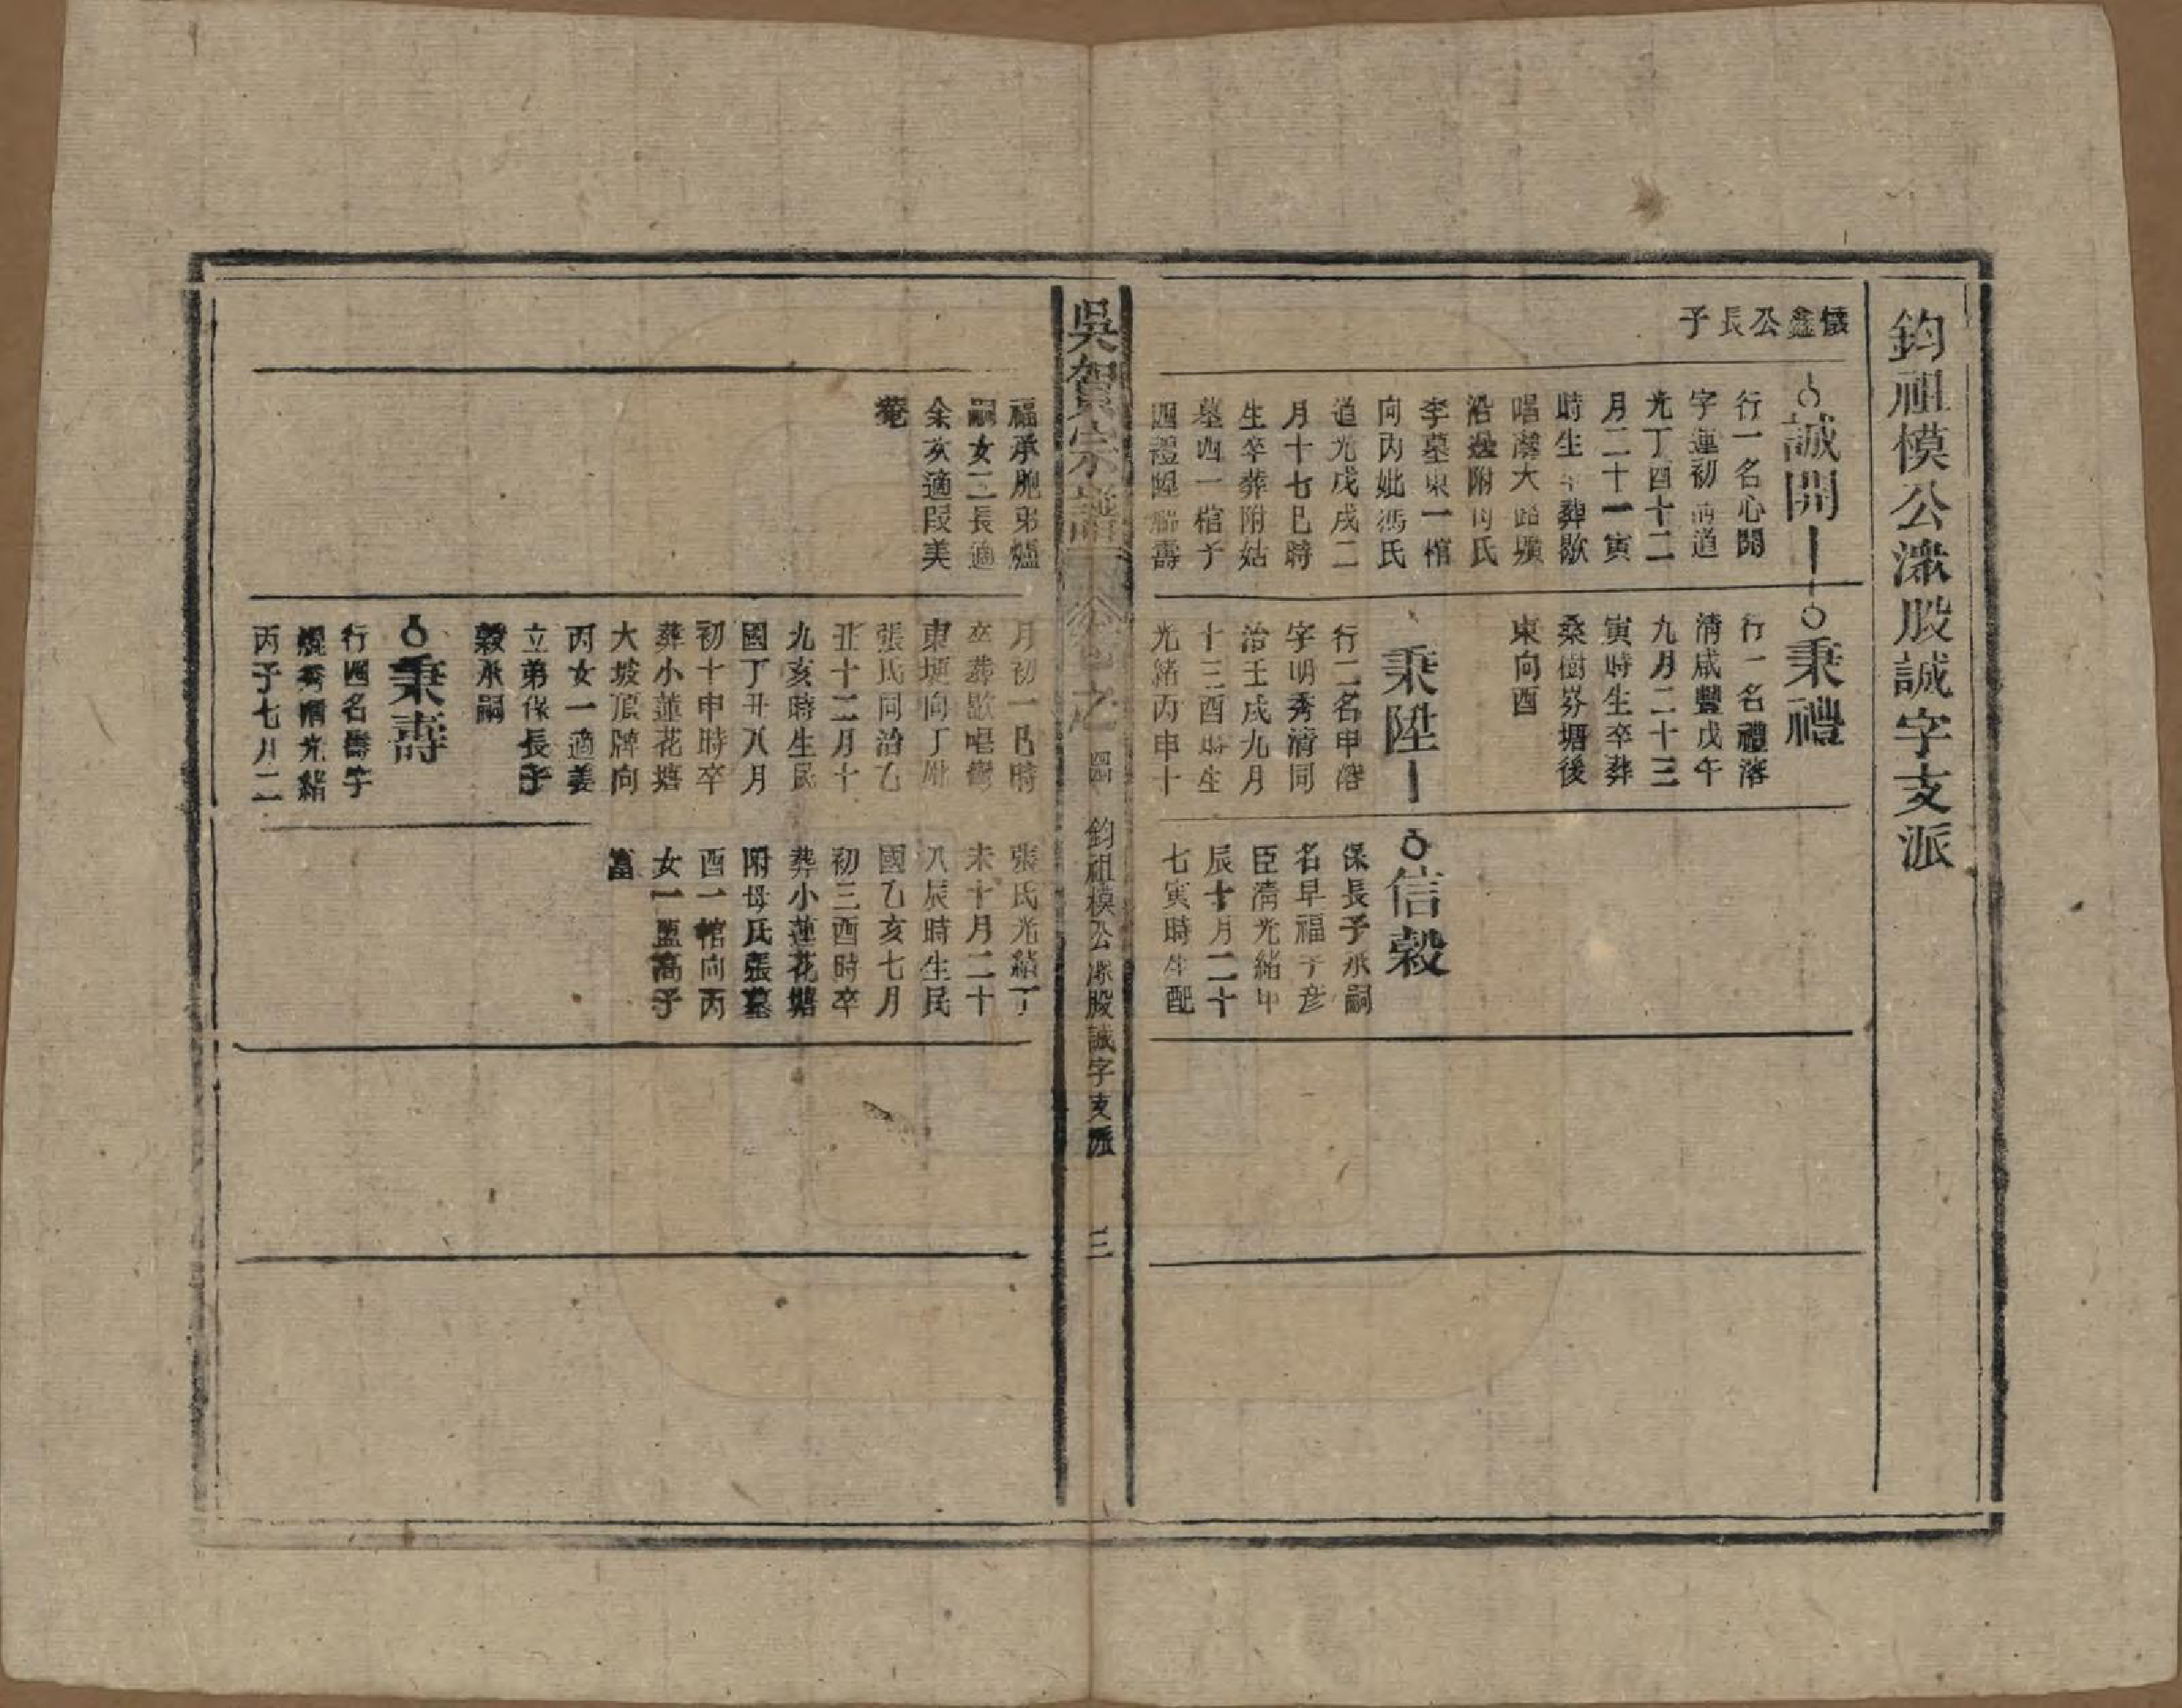 鈞祖模公濴股誠字支派
懷鑫公長子
誠開
行一名心開
字蓮初清道
光丁酉十二
月二十一寅
時生卒葬歇
唱灣大路墳
沿邊附向氏
李墓東一棺
向丙妣馮氏
道光戊戌二
月十七巳時
生卒葬附姑
墓西一棺子
四禮陞 壽
福承胞弟爐
嗣女二長適
余次適段美
菴
秉禮
行一名禮溶
清咸豐戊午
九月二十三
寅時生卒葬
桑樹塝塘後
東向酉
秉陞
行二名申溶
字明秀清同
治壬戌九月
十三酉時生
光緒丙申十
月初一巳時
卒葬歇唱灣
東埂向丁妣
張氏同治乙
丑十二月十
九亥時生民
國丁丑八月
初十申時卒
葬小蓮花塘
大坡頂牌向
丙女一適姜
立弟保長子
穀承嗣
秉壽
行四名壽字
耀秀清光緒
丙子七月二
信穀
保長子承嗣
名早福字彥
臣清光緒甲
辰十月二十
七寅時生配
張氏光緒丁
未十月二十
八辰時生民
國乙亥七月
初三酉時卒
葬小蓮花塘
附母氏張墓
酉一棺向丙
女一 高子
富
吳賀宗譜
卷之四
鈞祖模公濴股誠字支派
三